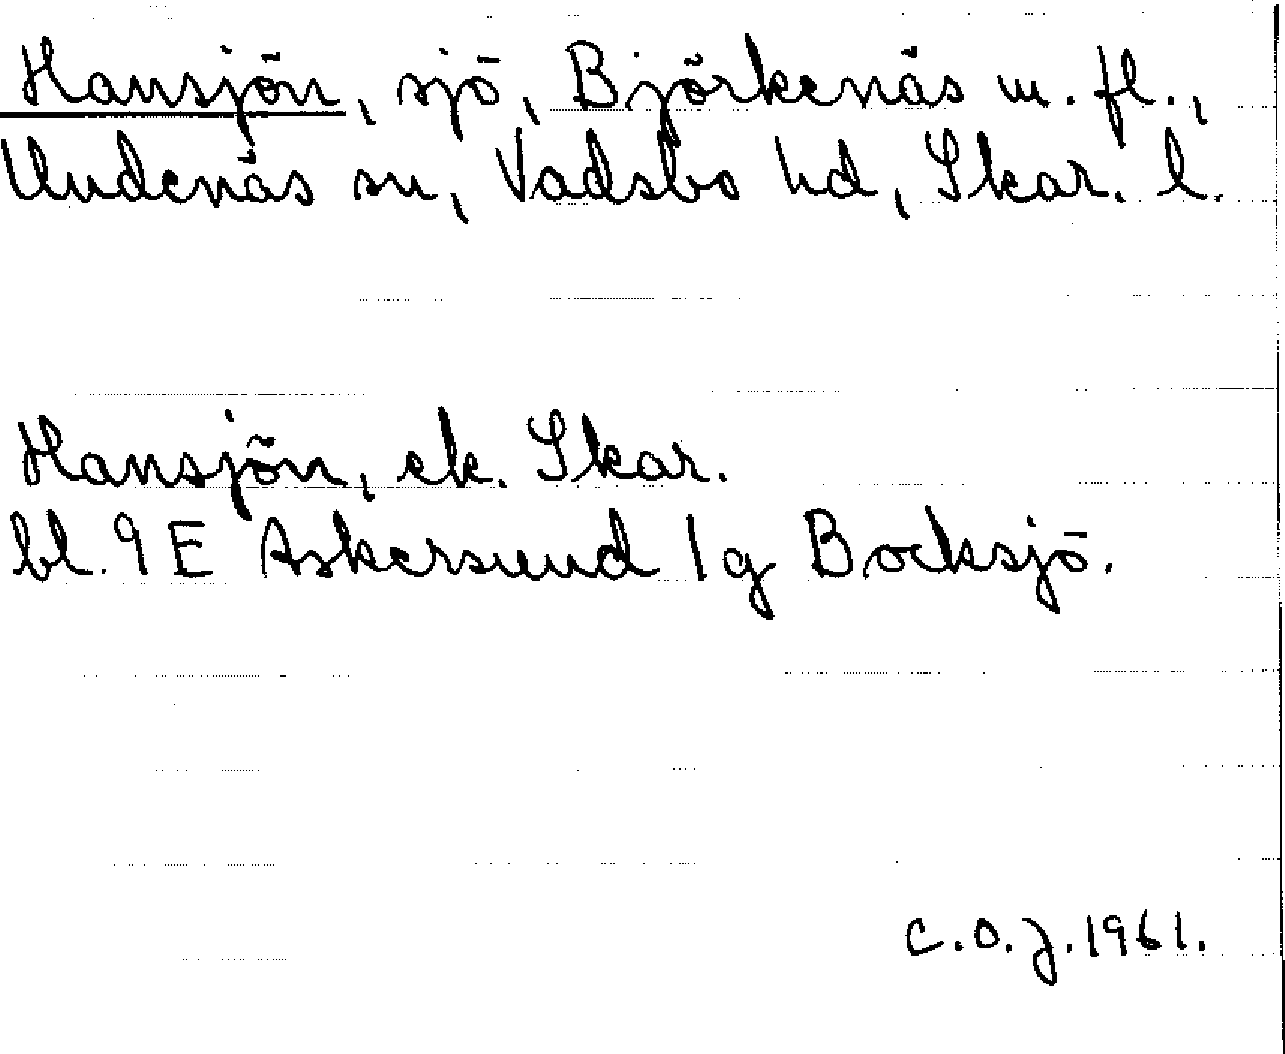 Hansjön, sjö, Björkenäs m. fl.,
Undenäs sn, Vadsbo hd, Skar. l.
Hansjön, ek. Skar.
bl. 9 E Askersund 1g Bocksjö.
C.O.J. 1961.